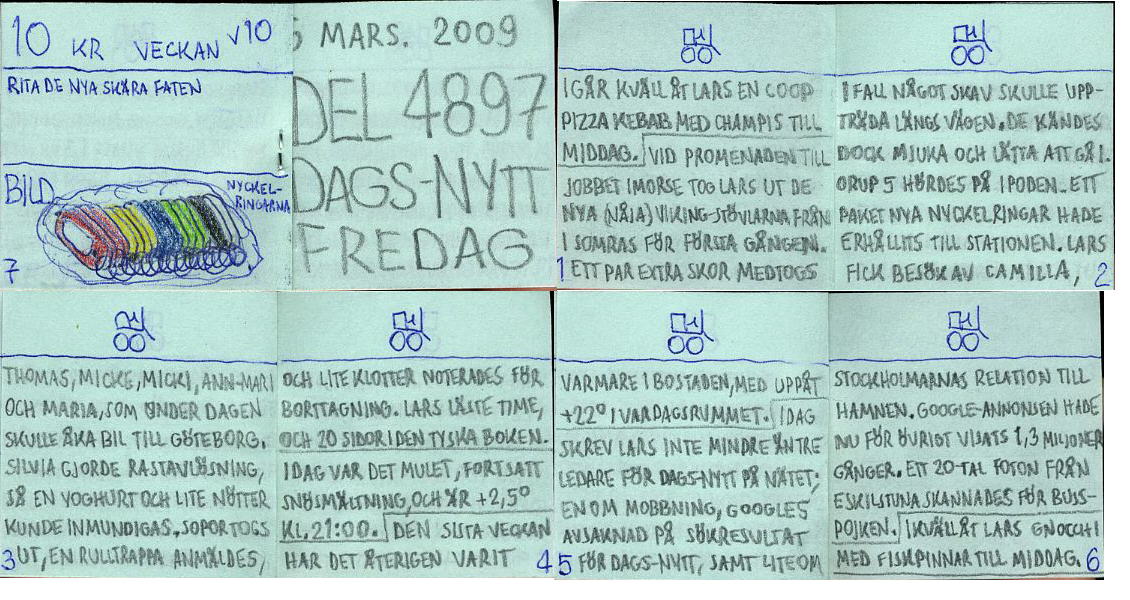 10 KR VECKAN V10
RITA DE NYA SKÄRA FATEN
BILD
NYCKEL-
RINGARNA
7
5 MARS. 2009
DEL 4897
DAGS-NYTT
FREDAG
I GÅR KVÄLL ÅT LARS EN COOP
PIZZA KEBAB MED CHAMPIS TILL
MIDDAG. VID PROMENADEN TILL
JOBBET IMORSE TOG LARS UT DE
NYA (NÅJA) VIKING-STÖVLARNA FRÅN
I SOMRAS FÖR FÖRSTA GÅNGEN.
ETT PAR EXTRA SKOR MEDTOGS
1
IFALL NÅGOT SKAV SKULLE UPP-
TRÄDA LÄNGS VÄGEN. DE KÄNDES
DOCK MJUKA OCH LÄTTA ATT GÅ I.
GRUP 5 HÖRDES PÅ IPODEN. ETT
PAKET NYA NYCKELRINGAR HADE
ERHÅLLITS TILL STATIONEN. LARS
FICK BESÖK AV CAMILLA,
2
THOMAS, MICKE, MICKI, ANN-MARI
OCH MARIA, SOM UNDER DAGEN
SKULLE ÅKA BIL TILL GÖTEBORG.
SILVIA GJORDE RASTAVLÖSNING,
SÅ EN YOGHURT OCH LITE NÖTTER
KUNDE INMUNDIGAS. SOPOR TOGS
UT, EN RULLTRAPPA ANMÄLDES,
3
OCH LITE KLOTTER NOTERADES FÖR
BORTTAGNING. LARS LÄSTE TIME,
OCH 20 SIDOR I DEN TYSKA BOKEN.
IDAG VAR DET MULET, FORTSATT
SNÖSMÄLTNING, OCH ÄR +2,5°
KL. 21:00. DEN SISTA VECKAN
HAR DET ÅTERIGEN VARIT
4
VARMARE I BOSTADEN, MED UPPÅT
+22° I VARDAGSRUMMET. IDAG
SKREV LARS INTE MINDRE ÄN TRE
LEDARE FÖR DAGS-NYTT PÅ NÄTET;
EN OM MOBBNING, GOOGLES
AVSAKNAD PÅ SÖKRESULTAT
FÖR DAGS-NYTT, SAMT LITE OM
5
STOCKHOLMARNAS RELATION TILL
HAMNEN. GOOGLE-ANNONSEN HADE
NU FÖR ÖVRIGT VISATS 1,3 MILJONER
GÅNGER. ETT 20-TAL FOTON FRÅN
ESKILSTUNA SKANNADES FÖR BUSS-
POJKEN. IKVÄLL ÅT LARS GNOCCHI
MED FISKPINNAR TILL MIDDAG.
6